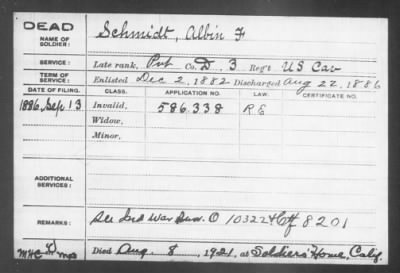 DEAD
NAME OF SOLDIER: Schmidt, Albin F
SERVICE: Late rank, Pvt Co. D, 3 Reg't US Cav
TERM OF SERVICE: Enlisted Dec 2, 1882 Discharged Aug 22, 1886
DATE OF FILING. CLASS. APPLICATION NO. LAW. CERTIFICATE NO.
1886, Sep 13 Invalid, 586.338 R E
Widow,
Minor,
ADDITIONAL SERVICES:
REMARKS: See Ind War Surv. O 10322 Ctf 8201
Died Aug. 8, 1921, at Soldiers' Home, Calif.